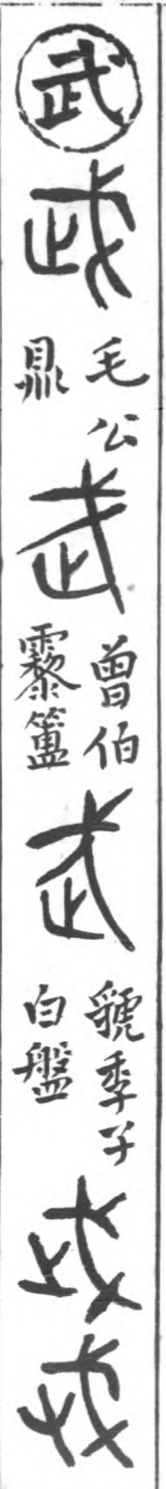 武
武
毛公
鼎
武
曾伯
簠
武
虢季子
白盤
武
武